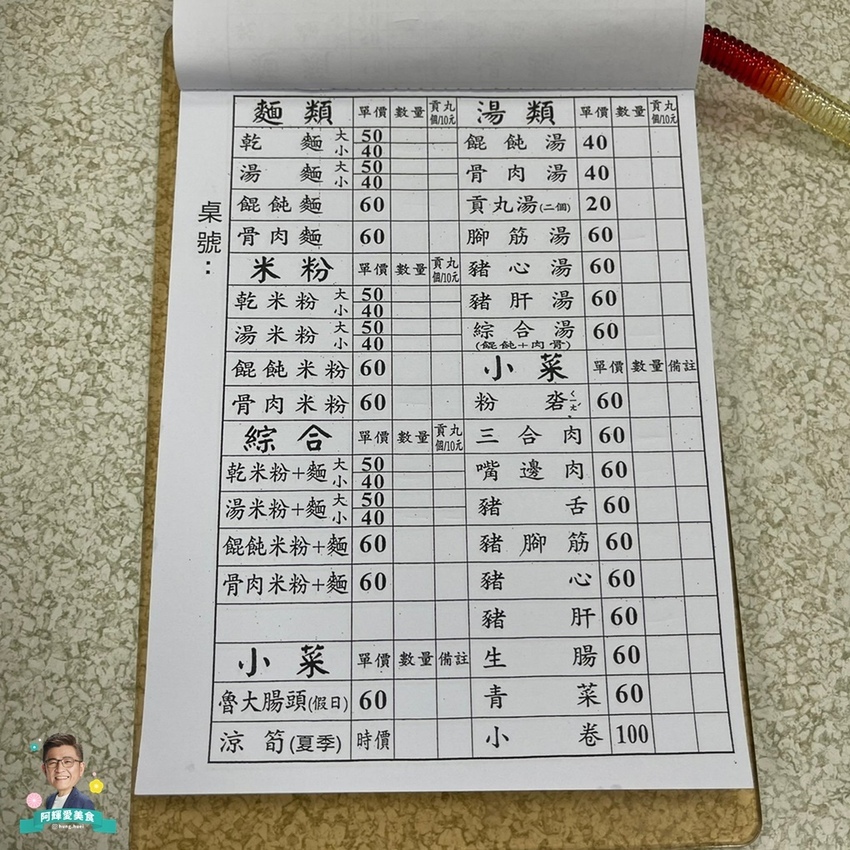 桌號：
麵類 單價 數量 貢丸個/10元
乾麵 大 50
小 40
湯麵 大 50
小 40
餛飩麵 60
骨肉麵 60
米粉 單價 數量 貢丸個/10元
乾米粉 大 50
小 40
湯米粉 大 50
小 40
餛飩米粉 60
骨肉米粉 60
綜合 單價 數量 貢丸個/10元
乾米粉+麵 大 50
小 40
湯米粉+麵 大 50
小 40
餛飩米粉+麵 60
骨肉米粉+麵 60
小菜 單價 數量 備註
魯大腸頭(假日) 60
涼筍(夏季) 時價
湯類 單價 數量 貢丸個/10元
餛飩湯 40
骨肉湯 40
貢丸湯(二個) 20
腳筋湯 60
豬心湯 60
豬肝湯 60
綜合湯 60
(餛飩+肉骨)
小菜 單價 數量 備註
粉 60
三合肉 60
嘴邊肉 60
豬舌 60
豬腳筋 60
豬心 60
豬肝 60
生腸 60
青菜 60
小卷 100
阿輝愛美食